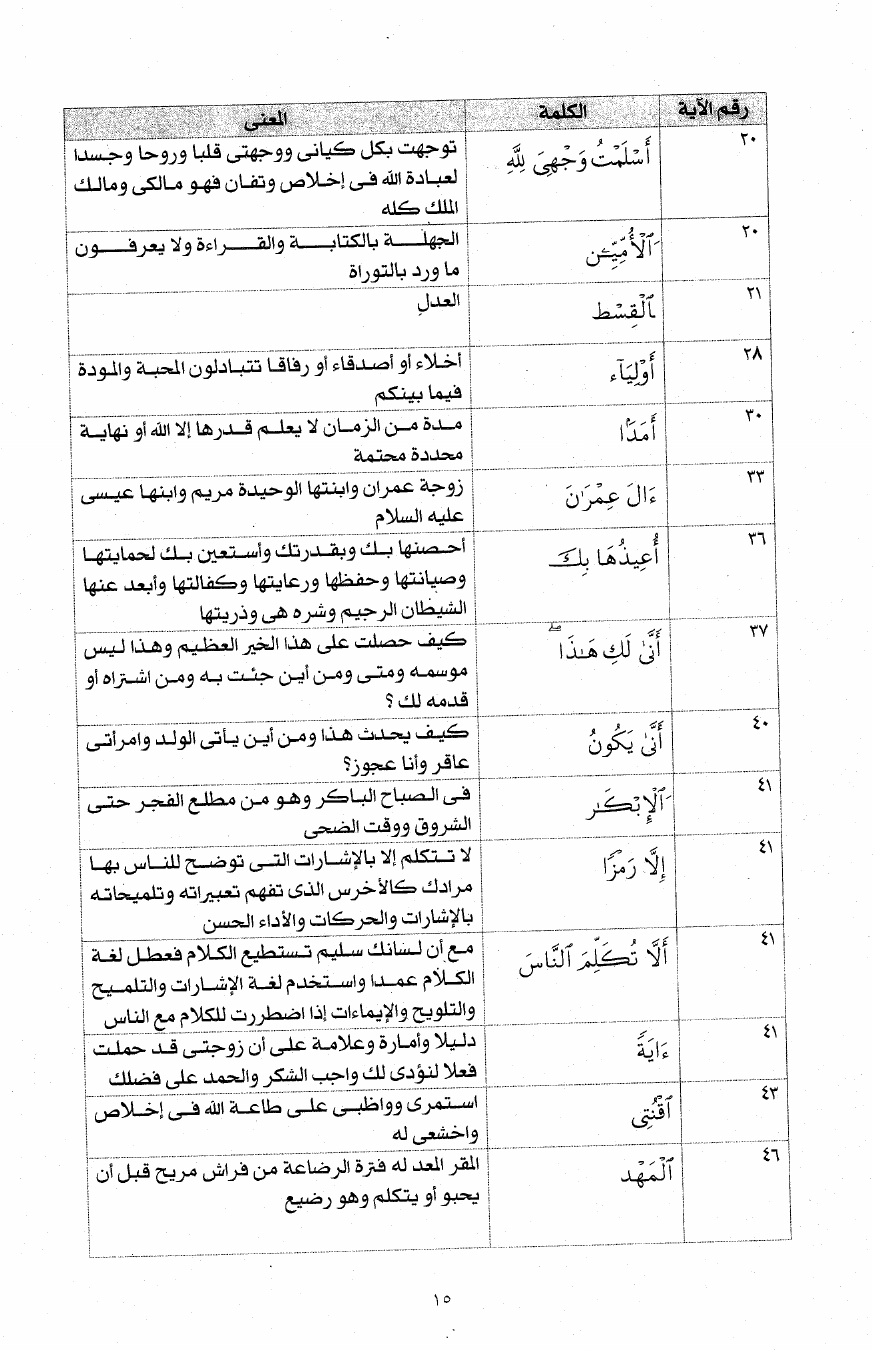 رقم الآية الكلمة المعنى
٢٠ أَسْلَمْتُ وَجْهِىَ لِلَّهِ توجهت بكل كيانى ووجهتى قلبا وروحا وجسدا
لعبادة الله فى إخلاص وتفان فهو مالكى ومالك
الملك كله
٢٠ وَٱلْأُمِّيِّـۧنَ الجهلة بالكتابة والقراءة ولا يعرفون
ما ورد بالتوراة
٢١ ٱلْقِسْطِ العدل
٢٨ أَوْلِيَآءَ أخلاء أو أصدقاء أو رفاقا تتبادلون المحبة والمودة
فيما بينكم
٣٠ أَمَدًۢا مدة من الزمان لا يعلم قدرها إلا الله أو نهاية
محددة محتمة
٣٣ ءَالَ عِمْرَٰنَ زوجة عمران وابنتها الوحيدة مريم وابنها عيسى
عليه السلام
٣٦ أُعِيذُهَا بِكَ أحصنها بك وبقدرتك وأستعين بك لحمايتها
وصيانتها وحفظها ورعايتها وكفالتها وأبعد عنها
الشيطان الرجيم وشره هى وذريتها
٣٧ أَنَّىٰ لَكِ هَـٰذَا ۖ كيف حصلت على هذا الخير العظيم وهذا ليس
موسمه ومتى ومن أين جئت به ومن اشتراه أو
قدمه لك ؟
٤٠ أَنَّىٰ يَكُونُ كيف يحدث هذا ومن أين يأتى الولد وامرأتى
عاقر وأنا عجوز؟
٤١ وَٱلْإِبْكَـٰرِ فى الصباح الباكر وهو من مطلع الفجر حتى
الشروق ووقت الضحى
٤١ إِلَّا رَمْزًا لا تتكلم إلا بالإشارات التى توضح للناس بها
مرادك كالأخرس الذى تفهم تعبيراته وتلميحاته
بالإشارات والحركات والأداء الحسن
٤١ أَلَّا تُكَلِّمَ ٱلنَّاسَ مع أن لسانك سليم تستطيع الكلام فعطل لغة
الكلام عمدا واستخدم لغة الإشارات والتلميح
والتلويح والإيماءات إذا اضطررت للكلام مع الناس
٤١ ءَايَةً دليلا وأمارة وعلامة على أن زوجتى قد حملت
فعلا لنؤدى لك واجب الشكر والحمد على فضلك
٤٣ ٱقْنُتِى استمرى وواظبى على طاعة الله فى إخلاص
واخشعى له
٤٦ ٱلْمَهْدِ المقر المعد له فترة الرضاعة من فراش مريح قبل أن
يحبو أو يتكلم وهو رضيع
١٥